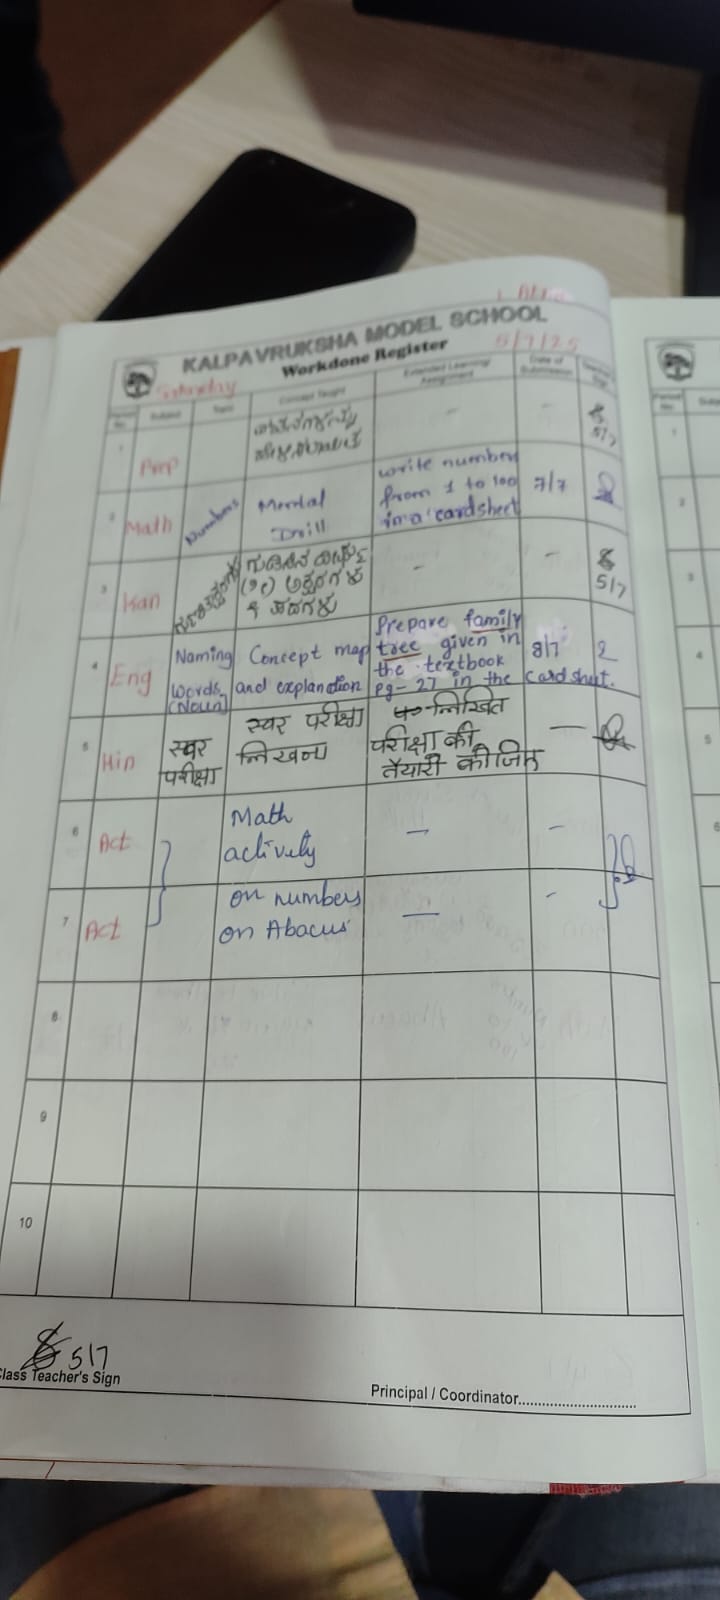 KALPAVRUKSHA MODEL SCHOOL
Workdone Register
5/7/25
Saturday
Period No. Subject Topic Concept Taught Extended Learning/ Assignment Date of Submission
1 Prep - - 5/7
2 Math Numbers Mental Drill write number from 1 to 100 in a cardsheet 7/7
3 Kan - - 5/7
4 Eng Naming Words (Noun) Concept map and explanation Prepare family tree given in the textbook Pg-27 in the cardsheet. 8/7
5 Hin स्वर परीक्षा स्वर परीक्षा लिखना लिखित परीक्षा की तैयारी कीजिए —
6 Act Math actively — -
7 Act on numbers on Abacus — -
8
9
10
5/7
Class Teacher's Sign
Principal / Coordinator..............................